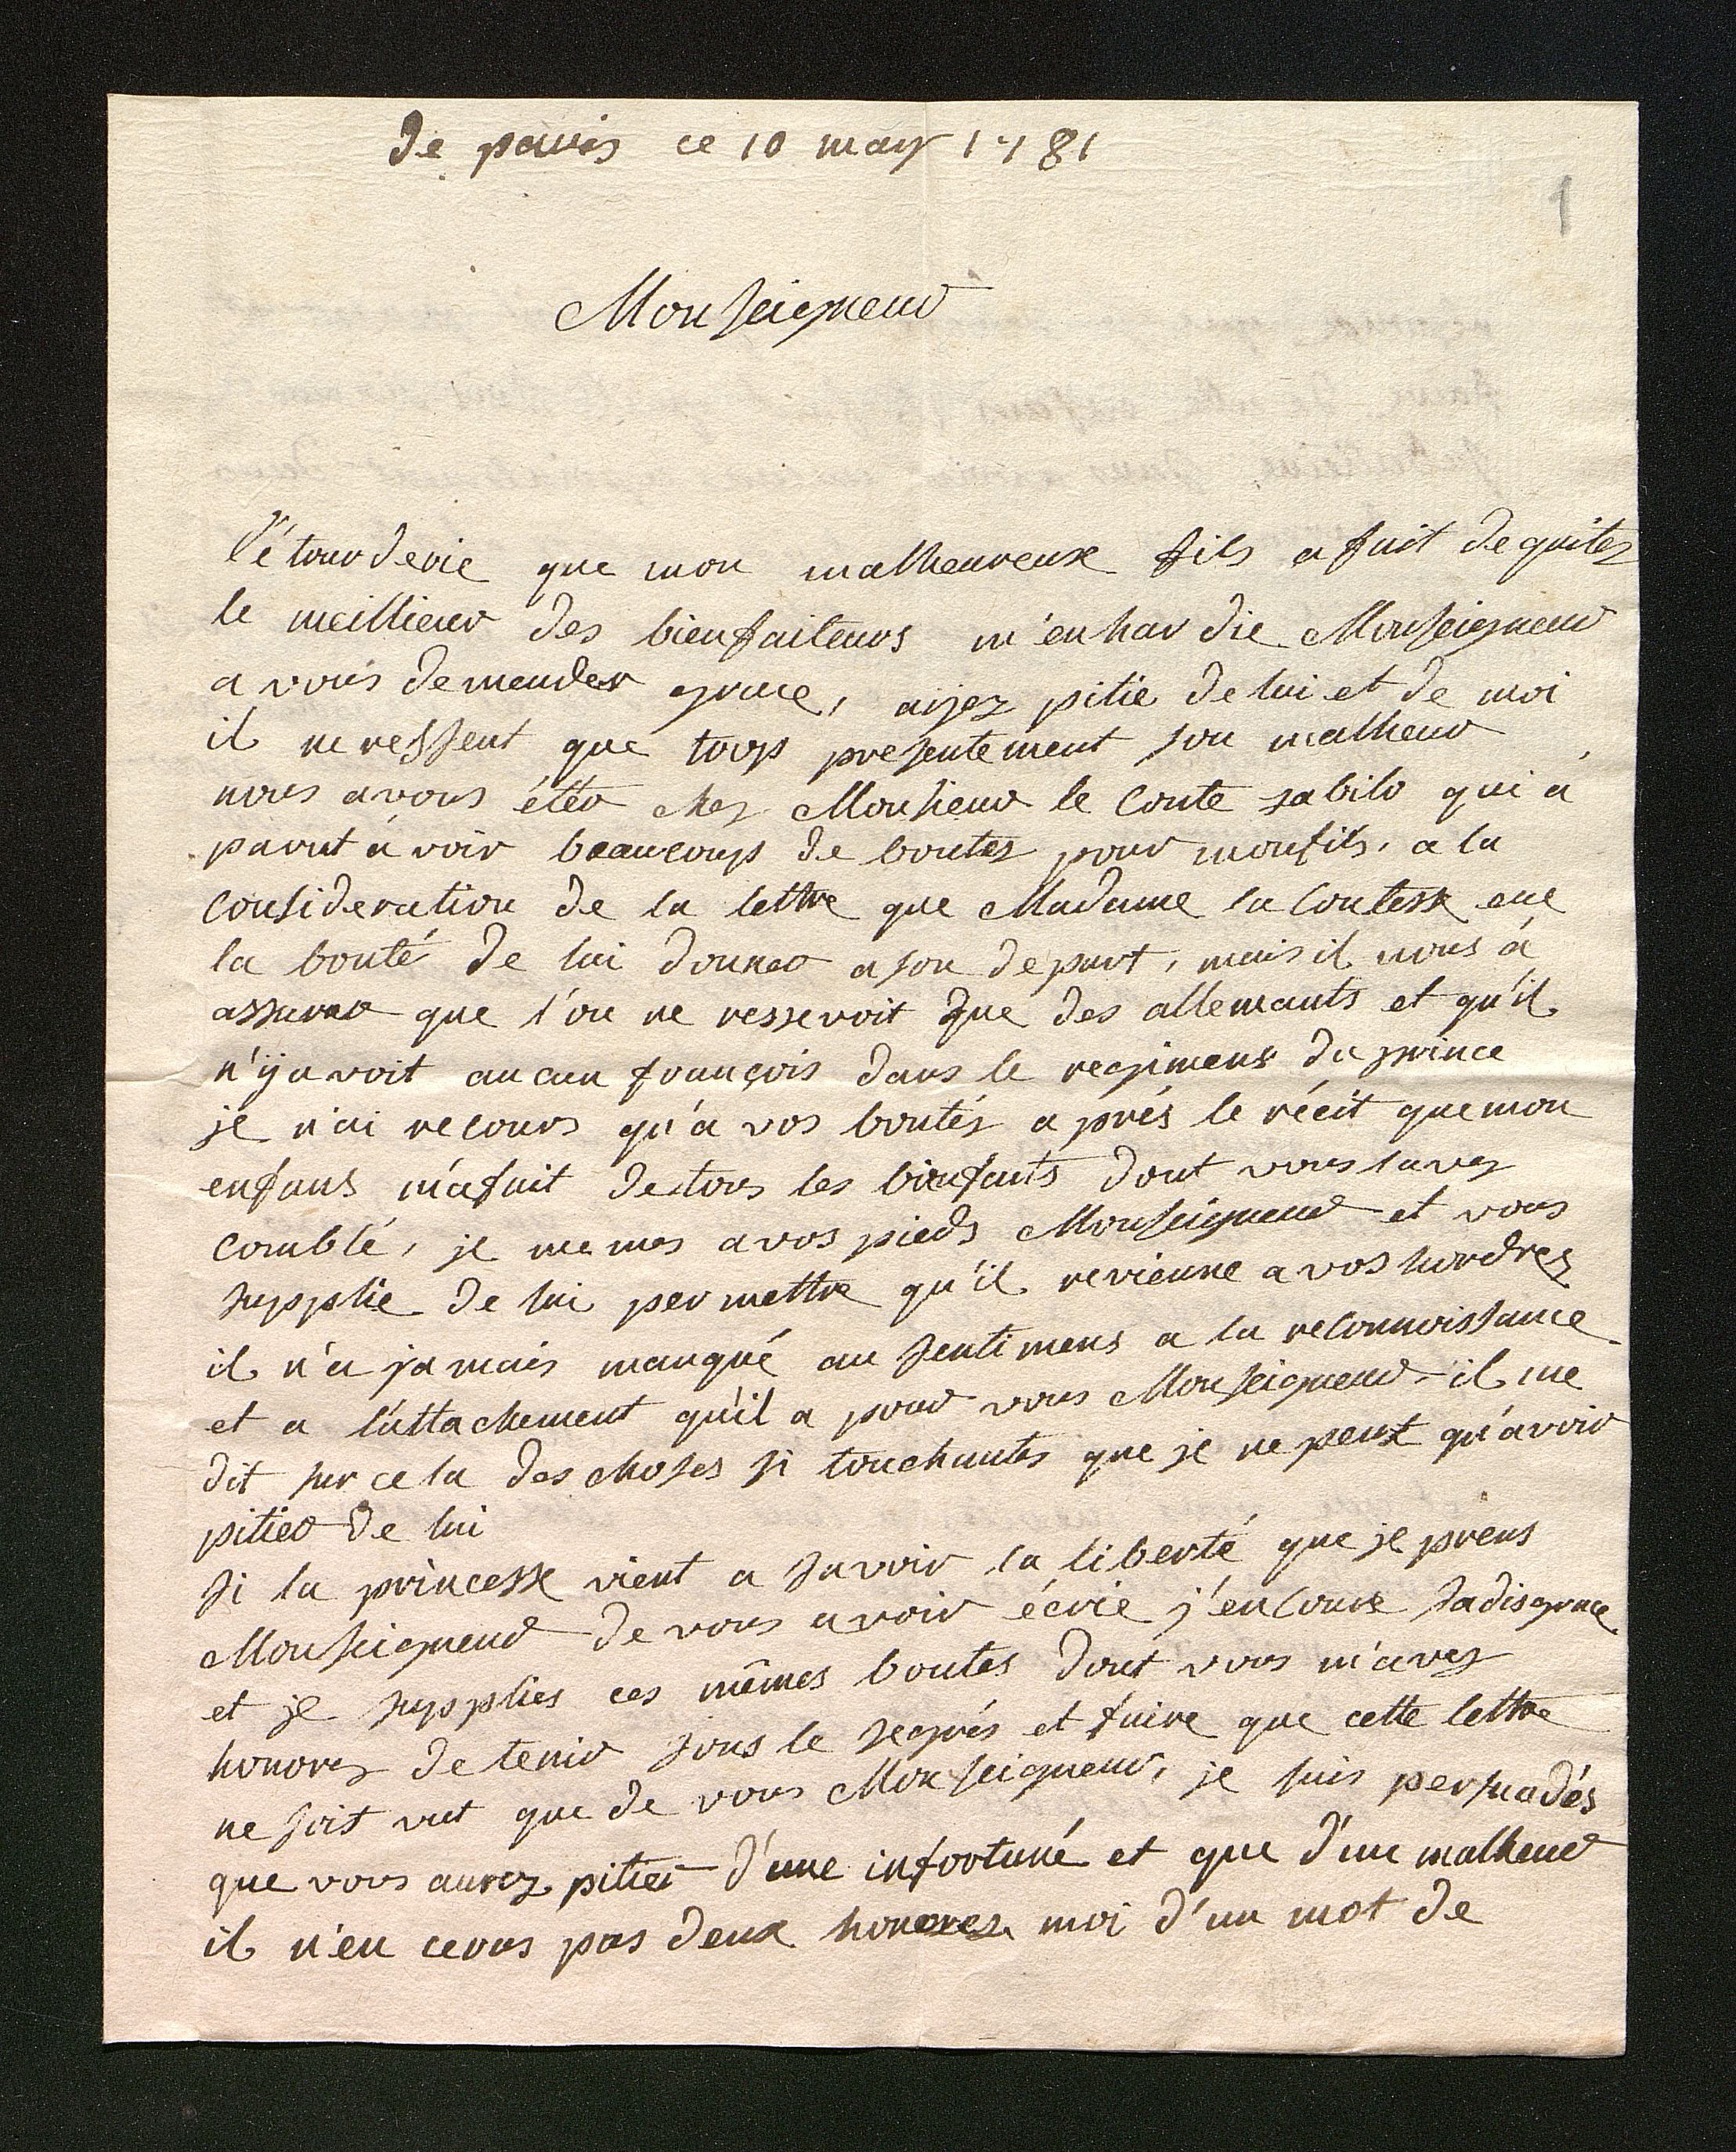 de paris ce 10 may 1781
1
Monseigneur
l'étourderie que mon malheureuse fils a fait de quitez
le meillieur des bienfaiteurs m'enhardie Monseigneur
a vous demender grace, aijez pitie de lui et de moi
il ne ressent que trop presentement son malheur
nous avons étér chez Monsieur le Conte sabilo qui a
parut a voir beaucoup de boutez pour mon fils, a la
consideration de la lettre que Madame la Contesse eue
la bonté de lui donner a son depart, mais il nous à
assurer que l'on ne ressevoit que des allemants et qu'il
n'ÿ avoit aucun françois dans le regimens du prince
je n'ai recours qu'a vos bontés a prés le récit que mon
enfans m'a fait de tous les bienfants dont vous lavez
comblé, je me mes a vos pieds Monseigneur et vous
supplie de lui permettre qu'il revienne a vos hordrez
il n'a jamais manqué au sentimens a la reconnoissance
et a l'attachement qu'il a pour vous Monseigneur il me
dit sur cela des choses si touchantes que je ne peut qu'avoir
pitier de lui
si la princesse vient a savoir la liberté que je prens
Monseigneur de vous avoir écrie j'encoure sa disgrace
et je supplies ces mêmes boutes dont vous m'avez
honorez de tenir sous le segrés et faire que cette lettre
ne soit vut que de vous Monseigneur, je suis persuadés
que vous aurez pitier d'une infortuné et que d'un malheur
il n'en cerras pas deux honorez moi d'un mot de